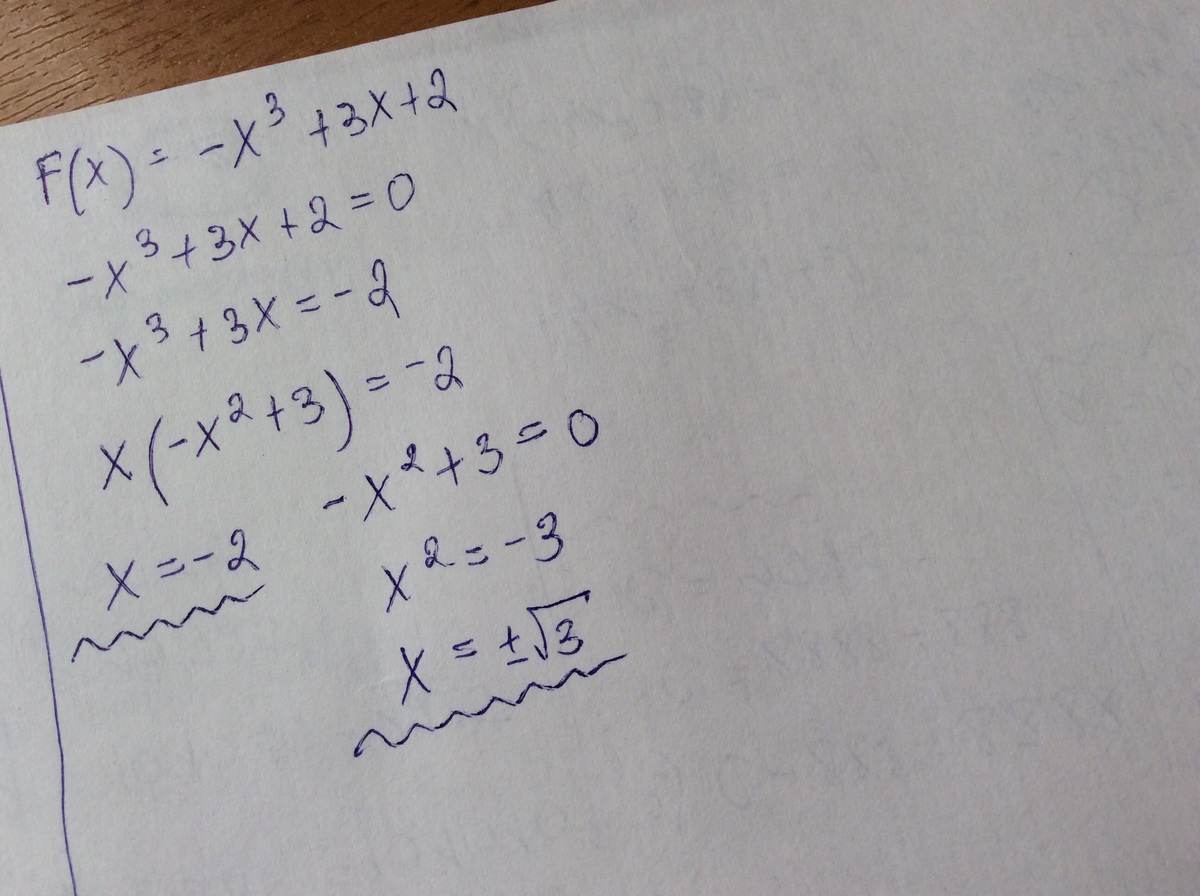 F(x) = -x³ +3x+2
-x³+3x+2=0
-x³+3x=-2
x(-x²+3)=-2
x=-2 -x²+3=0
x²=-3
x=±√3